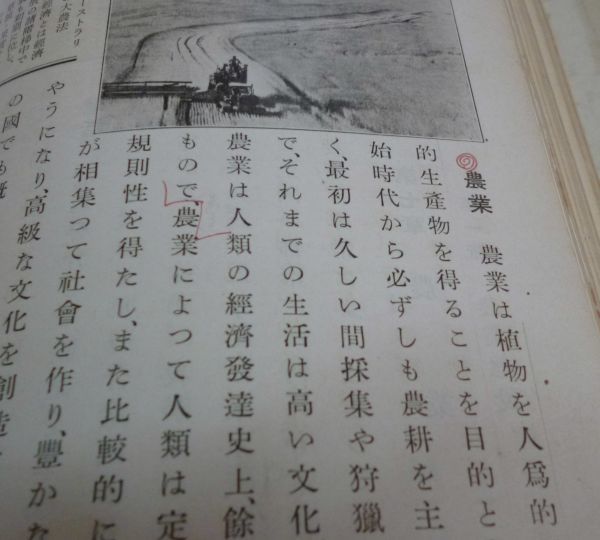 農業　農業は植物を人爲的
的生產物を得ることを目的と
始時代から必ずしも農耕を主
く、最初は久しい間採集や狩獵
で、それまでの生活は高い文化
農業は人類の經濟發達史上、餘
もので、農業によつて人類は定
規則性を得たし、また比較的に
が相集つて社會を作り、豐かな
やうになり、高級な文化を創造
の國でも
ーストラリ
大農法
經濟とは經濟